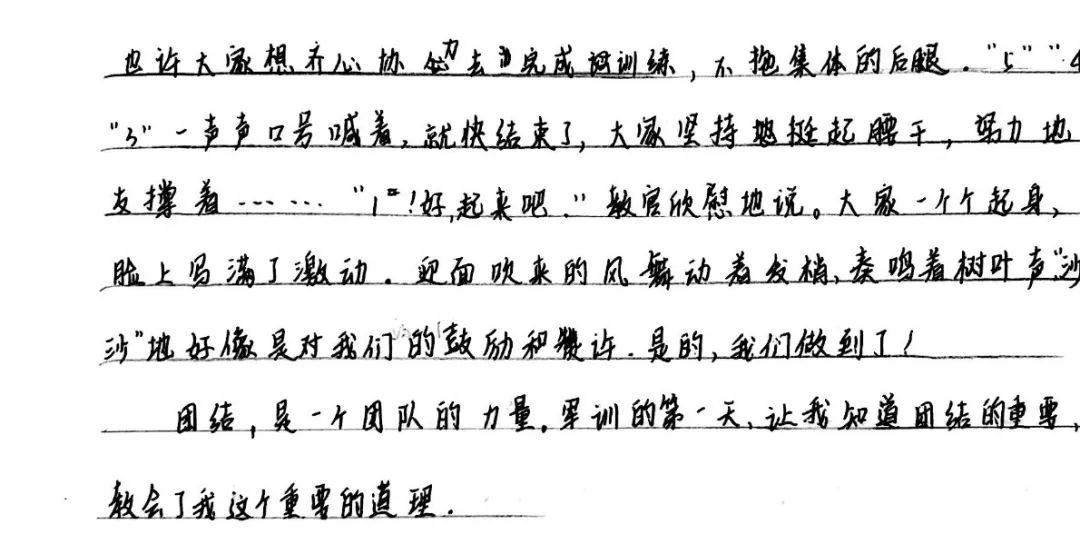 也许大家想齐心协力去完成训练，不拖集体的后腿。"5""4
"3"一声声口号喊着，就快结束了，大家坚持地挺起腰干，努力地
支撑着……"1"！好，起来吧."教官欣慰地说。大家一个个起身，
脸上写满了激动.迎面吹来的风舞动着发梢，奏鸣着树叶声"沙
沙"地好像是对我们的鼓励和赞许.是的，我们做到了！
团结，是一个团队的力量。军训的第一天，让我知道团结的重要，
教会了我这个重要的道理.